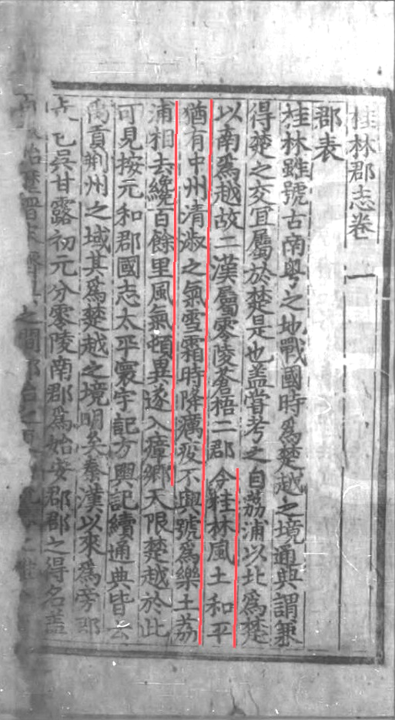 桂林郡志卷一
郡表
桂林雖號古南粵之地戰國時爲楚越之境通典謂兼
得楚之交宜屬於楚是也蓋嘗考之自荔浦以北爲楚
以南爲越故二漢屬零陵蒼梧二郡今桂林風土和平
猶有中州清淑之氣雪霜時降癘疫不興號爲樂土荔
浦相去纔百餘里風氣頓異遂入瘴鄉天限楚越於此
可見按元和郡國志太平寰宇記方輿記續通典皆云
禹貢荆州之域其爲楚越之境明矣秦漢以來爲旁郡
吳甘露初元分零陵南郡爲始安郡郡之得名蓋
始